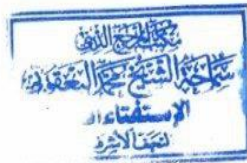 مكتب المرجع الديني
سماحة الشيخ محمد اليعقوبي
الاستفتاءات
النجف الأشرف